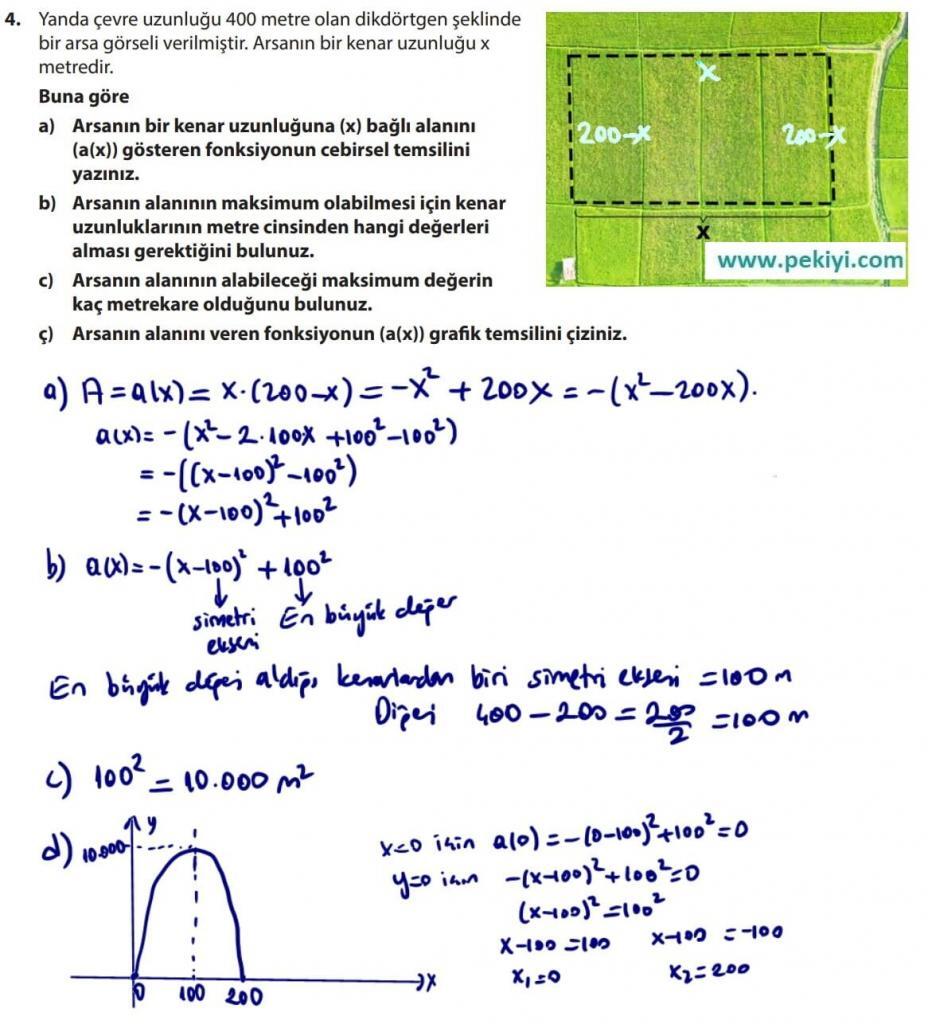 4. Yanda çevre uzunluğu 400 metre olan dikdörtgen şeklinde
bir arsa görseli verilmiştir. Arsanın bir kenar uzunluğu x
metredir.
Buna göre
a) Arsanın bir kenar uzunluğuna (x) bağlı alanını
(a(x)) gösteren fonksiyonun cebirsel temsilini
yazınız.
b) Arsanın alanının maksimum olabilmesi için kenar
uzunluklarının metre cinsinden hangi değerleri
alması gerektiğini bulunuz.
c) Arsanın alanının alabileceği maksimum değerin
kaç metrekare olduğunu bulunuz.
ç) Arsanın alanını veren fonksiyonun (a(x)) grafik temsilini çiziniz.
x
200-x 200-x
x
www.pekiyi.com
a) A = a(x) = x·(200-x) = -x² + 200x = -(x²-200x).
a(x) = -(x²-2·100x+100²-100²)
= -((x-100)²-100²)
= -(x-100)²+100²
b) a(x) = -(x-100)² + 100²
simetri ekseni
En büyük değer
En büyük değeri aldığı kenarlardan biri simetri ekseni = 100 m
Diğeri 400 - 200 = 200/2 = 100 m
c) 100² = 10.000 m²
d) y
10.000
0 100 200 x
x=0 için a(0) = -(0-100)²+100² = 0
y=0 için -(x-100)²+100²=0
(x-100)²=100²
x-100=100 x-100=-100
x₁=0 x₂=200